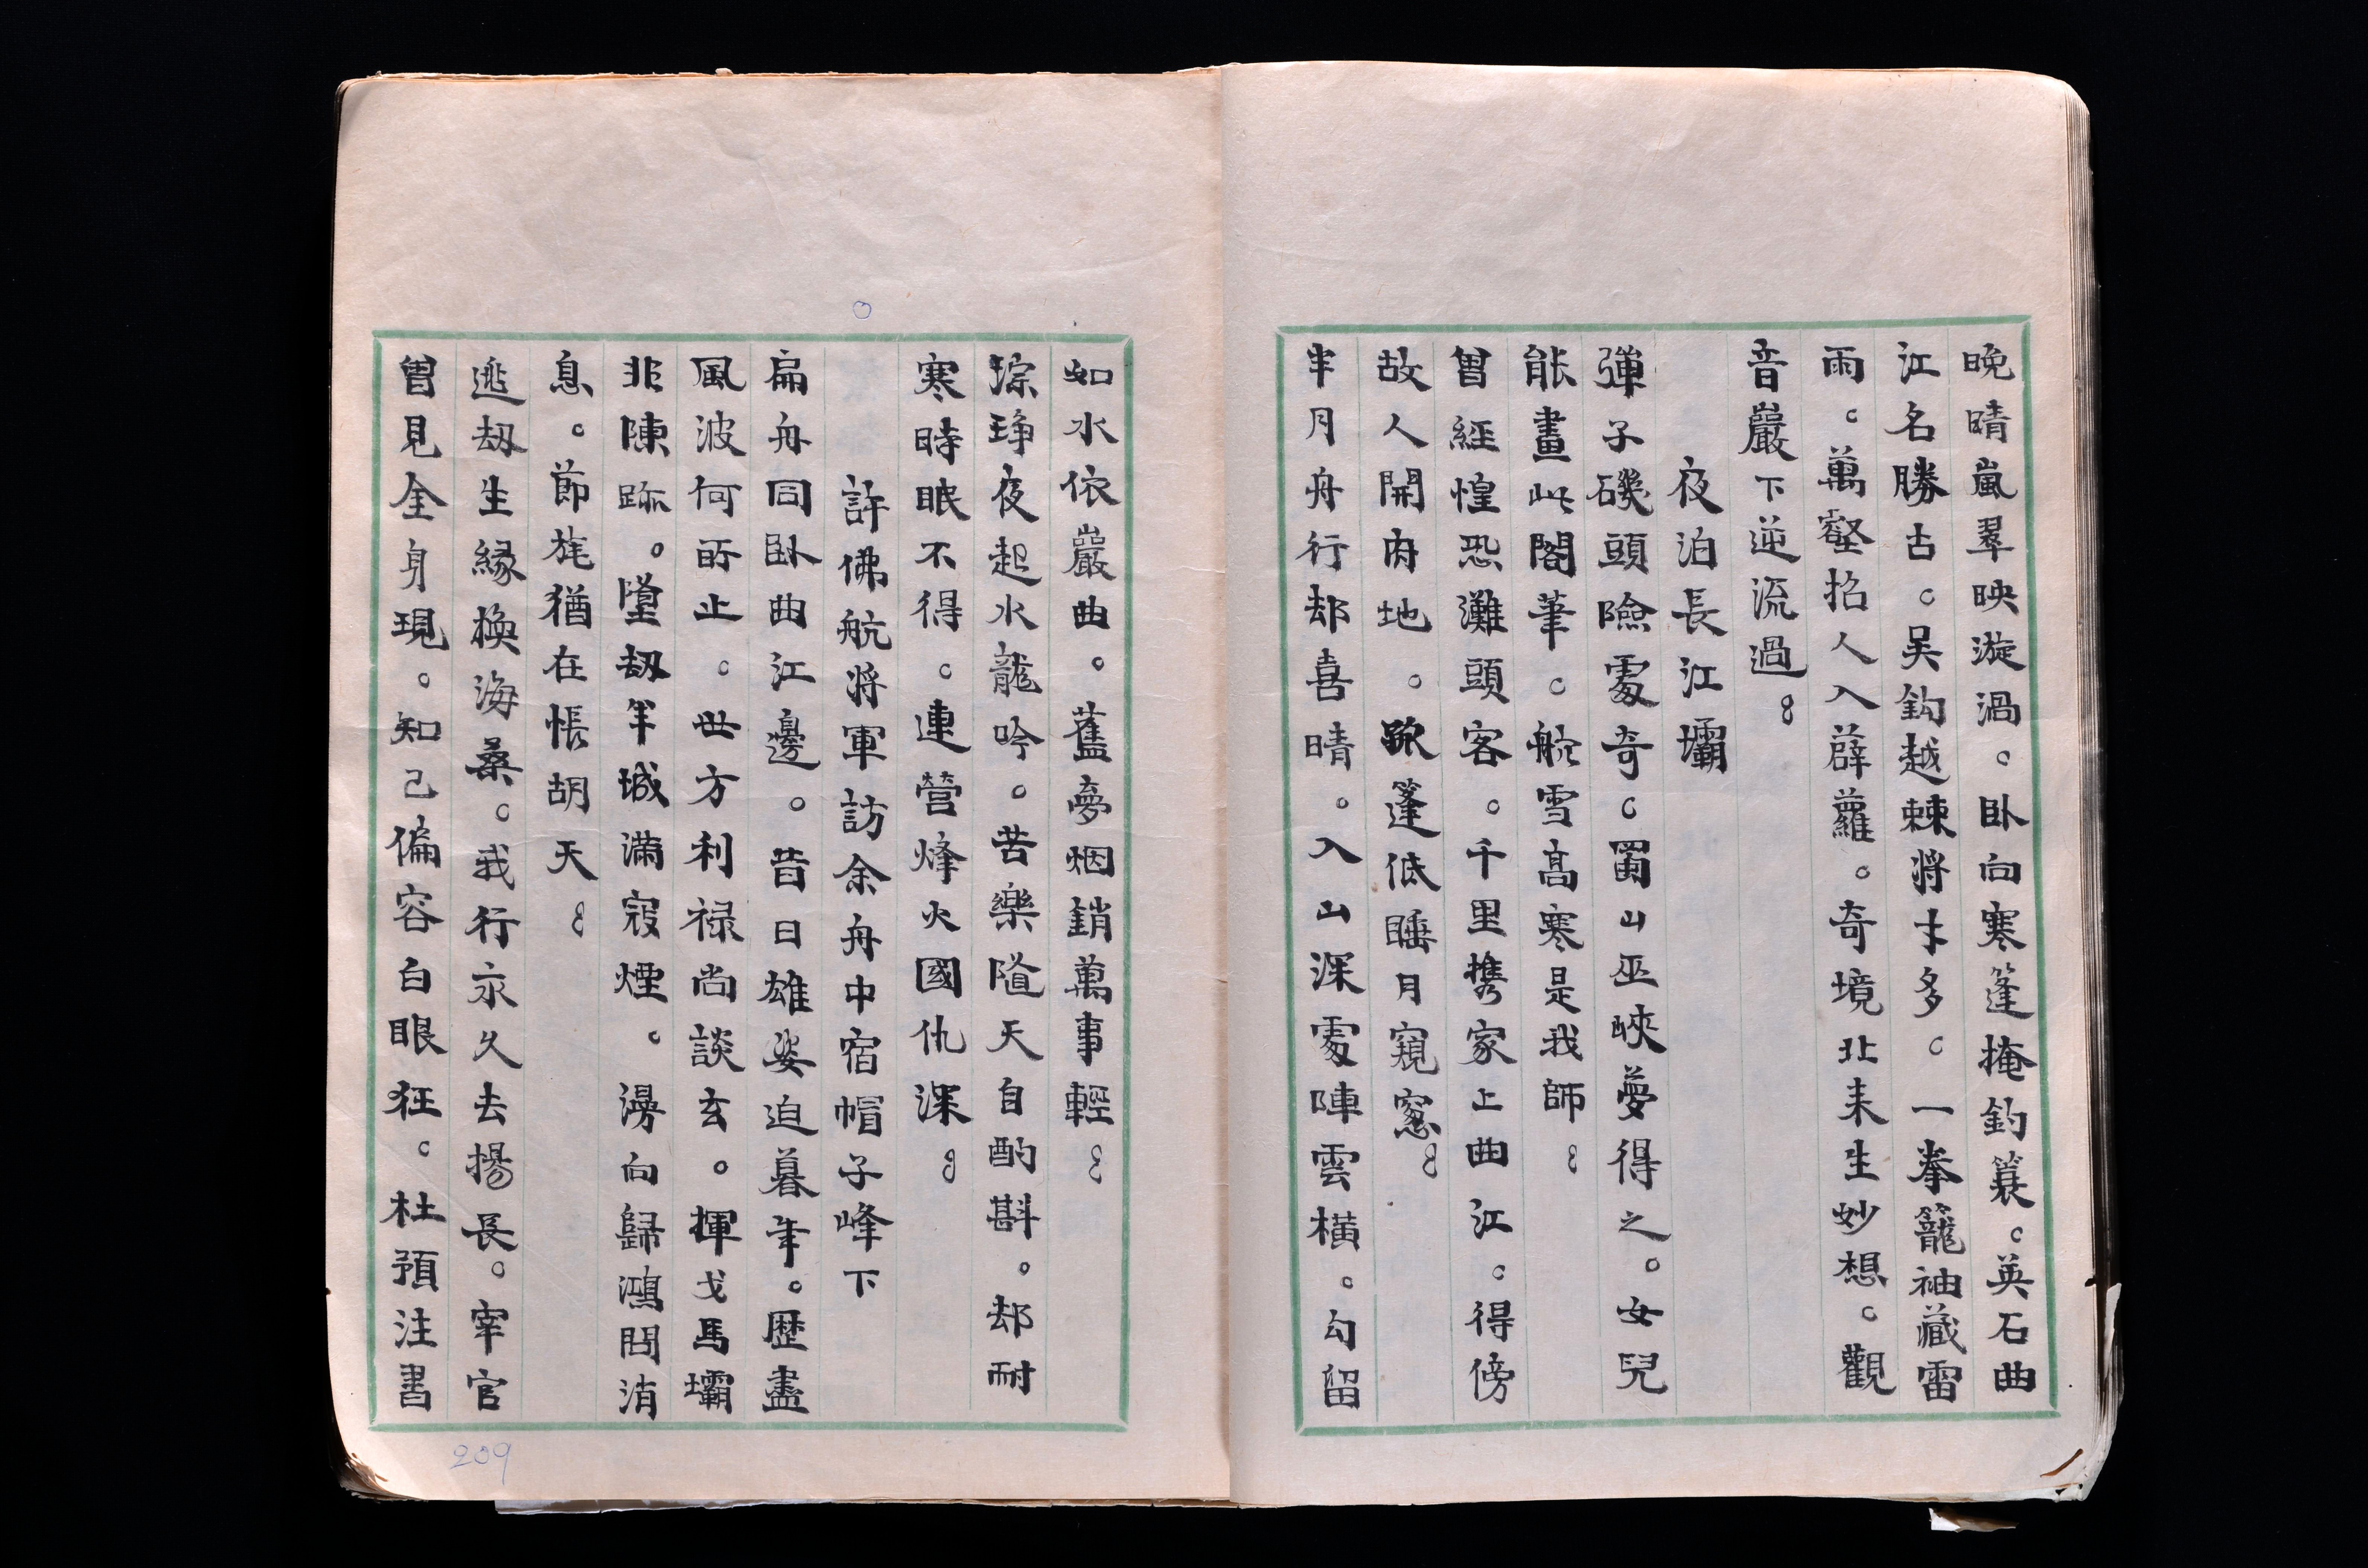 晚晴嵐翠映漩渦。卧向寒篷掩釣簑。英石曲
江名勝古。吴鈎越棘將才多。一拳籠袖藏雷
雨。萬壑招人入薜蘿。奇境北来生妙想。觀
音巖下逆流過。
夜泊長江壩
彈子磯頭險處奇。蜀山巫峽夢得之。女兒
能畫此閣筆。航雪高寒是我師。
曾經惶恐灘頭客。千里携家上曲江。得傍
故人開府地。欹篷低睡月窺窻。
半月舟行却喜晴。入山深處陣雲橫。勾留
如水依巖曲。舊夢烟銷萬事輕。
琮琤夜起水龍吟。苦樂隨天自酌斟。却耐
寒時眠不得。連營烽火國仇深。
許佛航將軍訪余舟中宿帽子峰下
扁舟同卧曲江邊。昔日雄姿迫暮年。歷盡
風波何所止。世方利祿尚談玄。揮戈馬壩
非陳跡。墮劫羊城滿寇煙。漫向歸鴻問消
息。節旄猶在悵胡天。
逃劫生緣換海桑。我行永久去揚長。宰官
曾見全身現。知己偏容白眼狂。杜預注書
209